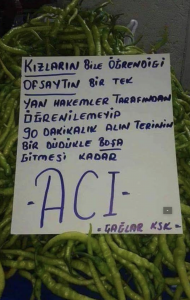 KIZLARIN BİLE ÖĞRENDİĞİ
OFSAYTIN BİR TEK
YAN HAKEMLER TARAFINDAN
ÖĞRENİLEMEYİP
90 DAKİKALIK ALIN TERİNİN
BİR DÜDÜKLE BOŞA
GİTMESİ KADAR
-ACI-
- ÇAĞLAR KSK -